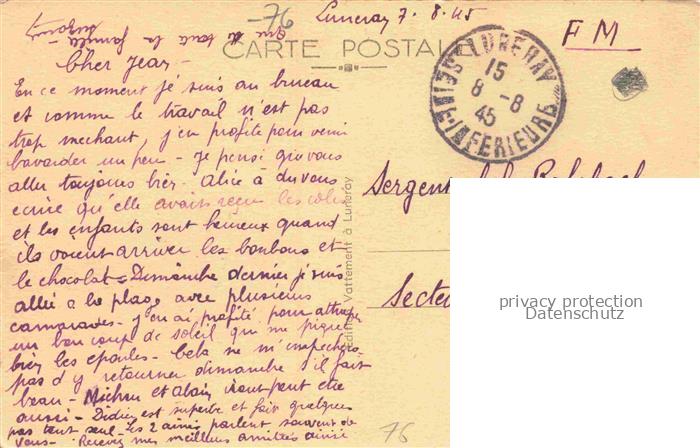 -76
Luneray 7. 8. 45
que de toute la famille
CARTE POSTALE
F M
LUNERAY
15
8 -8
45
SEINE-INFERIEURE
Cher Jean -
En ce moment je suis au bureau
et comme le travail n'est pas
trop mechant, j'en profite pour venir
bavarder un peu - Je pense que vous
allez toujours bien. Alice a du vous
ecrire qu'elle avait reçu les colis
et les enfants sont heureux quand
ils voient arriver les bonbons et
le chocolat - Dimanche dernier je suis
allée a la plage avec plusieurs
camarades - j'en ai profité pour attraper
un bon coup de soleil qui me pique
bien les epaules - Cela ne m'empechera
pas d'y retourner dimanche s'il fait
beau - Michou et Alain iront peut etre
aussi - Didier est superbe et fait quelques
pas tout seul - Les 2 ainés parlent souvent de
vous - Recevez mes meilleurs amitiés ainsi
Vattement à Luneray
Sergent
Secteur
privacy protection
Datenschutz
76